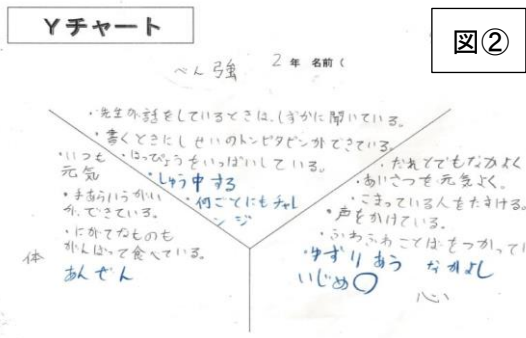 Yチャート
図②
べん強
2年 名前(
・先生が話をしているときは、しずかに聞いている。
・書くときにしせいのトンピタピンができている。
・はっぴょうをいっぱいしている。
・しゅう中する
・何ごとにもチャレ
ンジ
・いつも
元気
・手あらいうがい
が、できている。
・にがてなものも
がんばって食べている。
あんぜん
体
・だれとでもなかよく
・あいさつを元気よく。
・こまっている人をたすける。
・声をかけている。
・ふわふわことばをつかってい
・ゆずりあう なかよし
いじめ〇
心